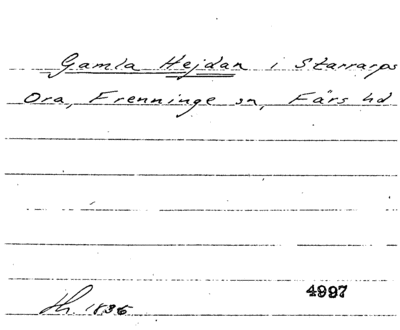 Gamla Hejdan i Starrarps
Ora, Frenninge sn, Färs hd
4997
Lh. 1836